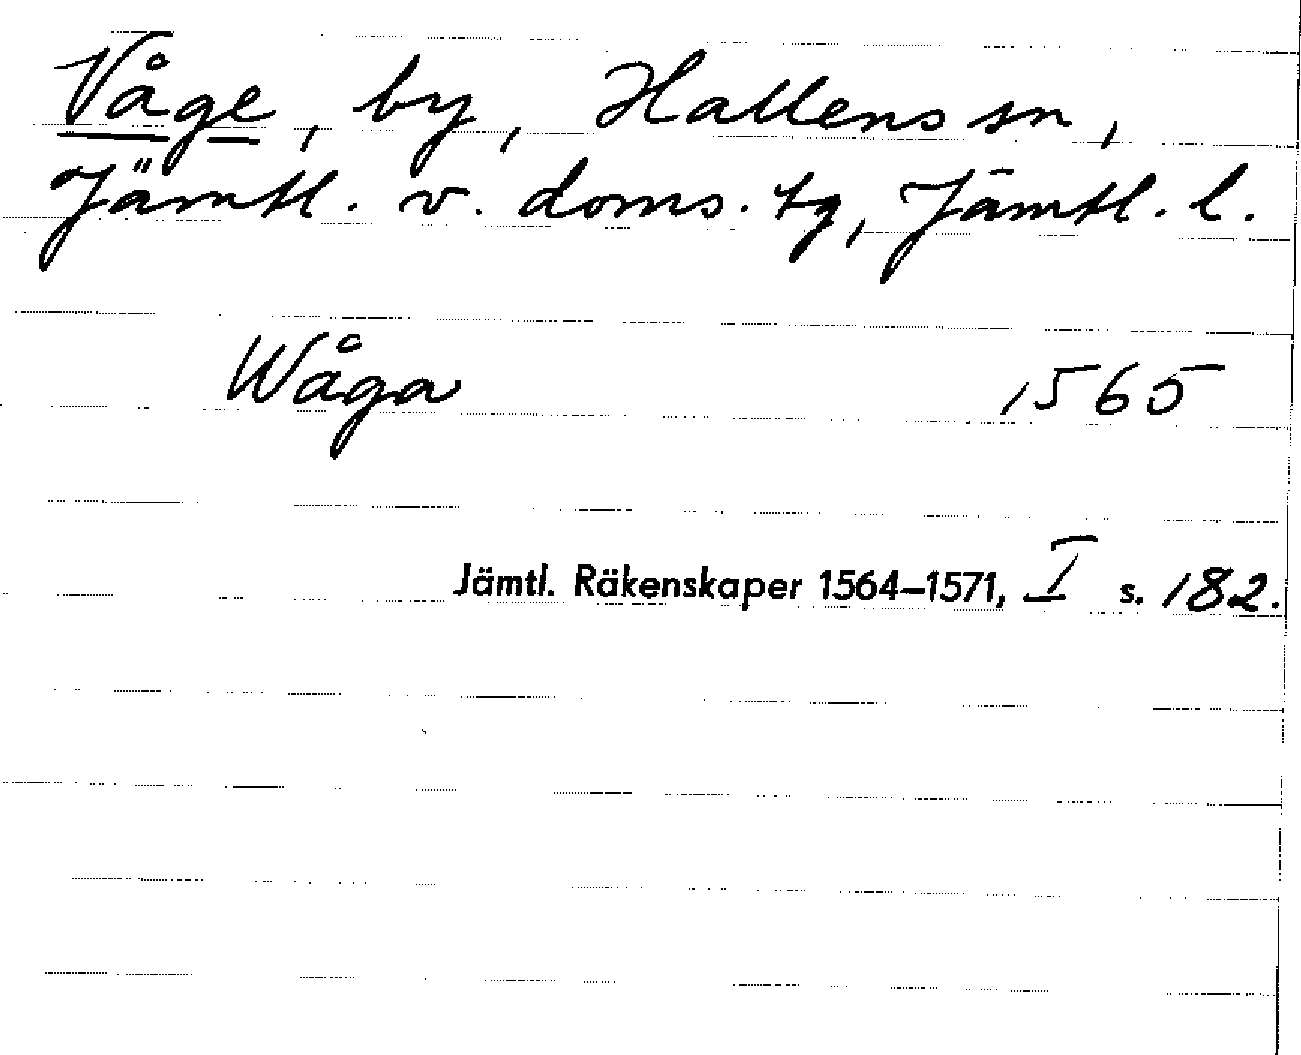 Våge, by, Hallens sn,
Jämtl. v. doms. tg, Jämtl. l.
Wåga 1565
Jämtl. Räkenskaper 1564–1571, I s. 182.